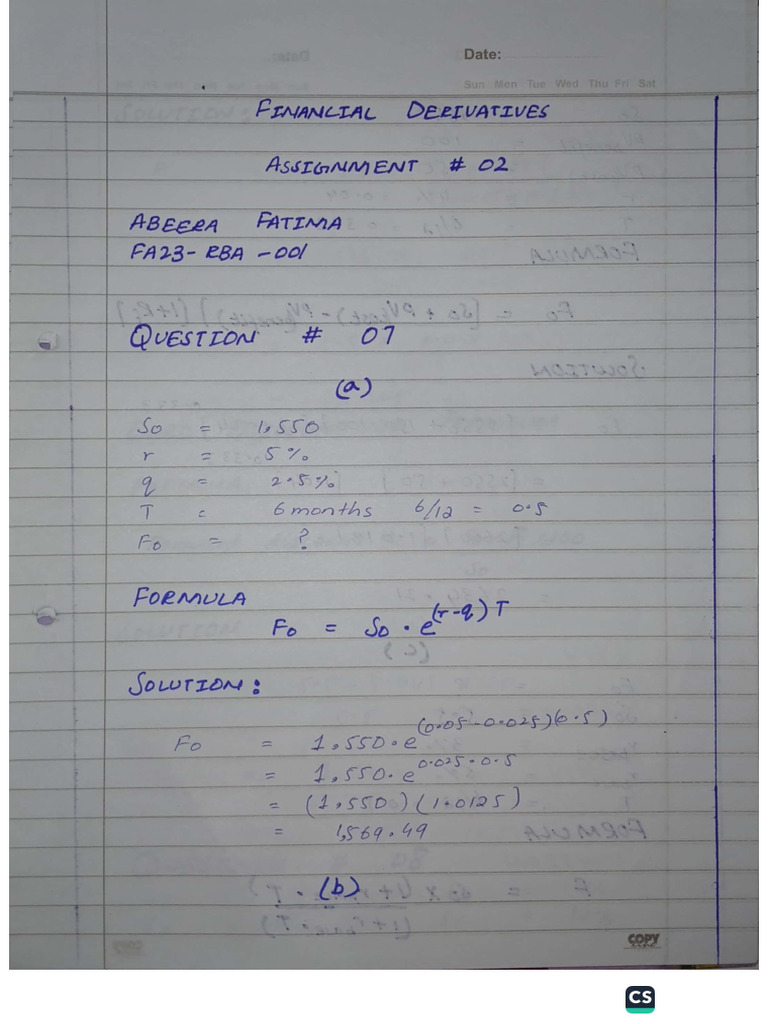 Date:
Sun Mon Tue Wed Thu Fri Sat
FINANCIAL DERIVATIVES
ASSIGNMENT # 02
ABEERA FATIMA
FA23-RBA-001
QUESTION # 07
(a)
So = 1,550
r = 5%
q = 2.5%
T = 6 months 6/12 = 0.5
Fo = ?
FORMULA
Fo = So . e^(r-q)T
SOLUTION:
Fo = 1,550.e^(0.05-0.025)(0.5)
= 1,550.e^0.025*0.5
= (1,550)(1.0125)
= 1,569.49
(b)
COPY
CS